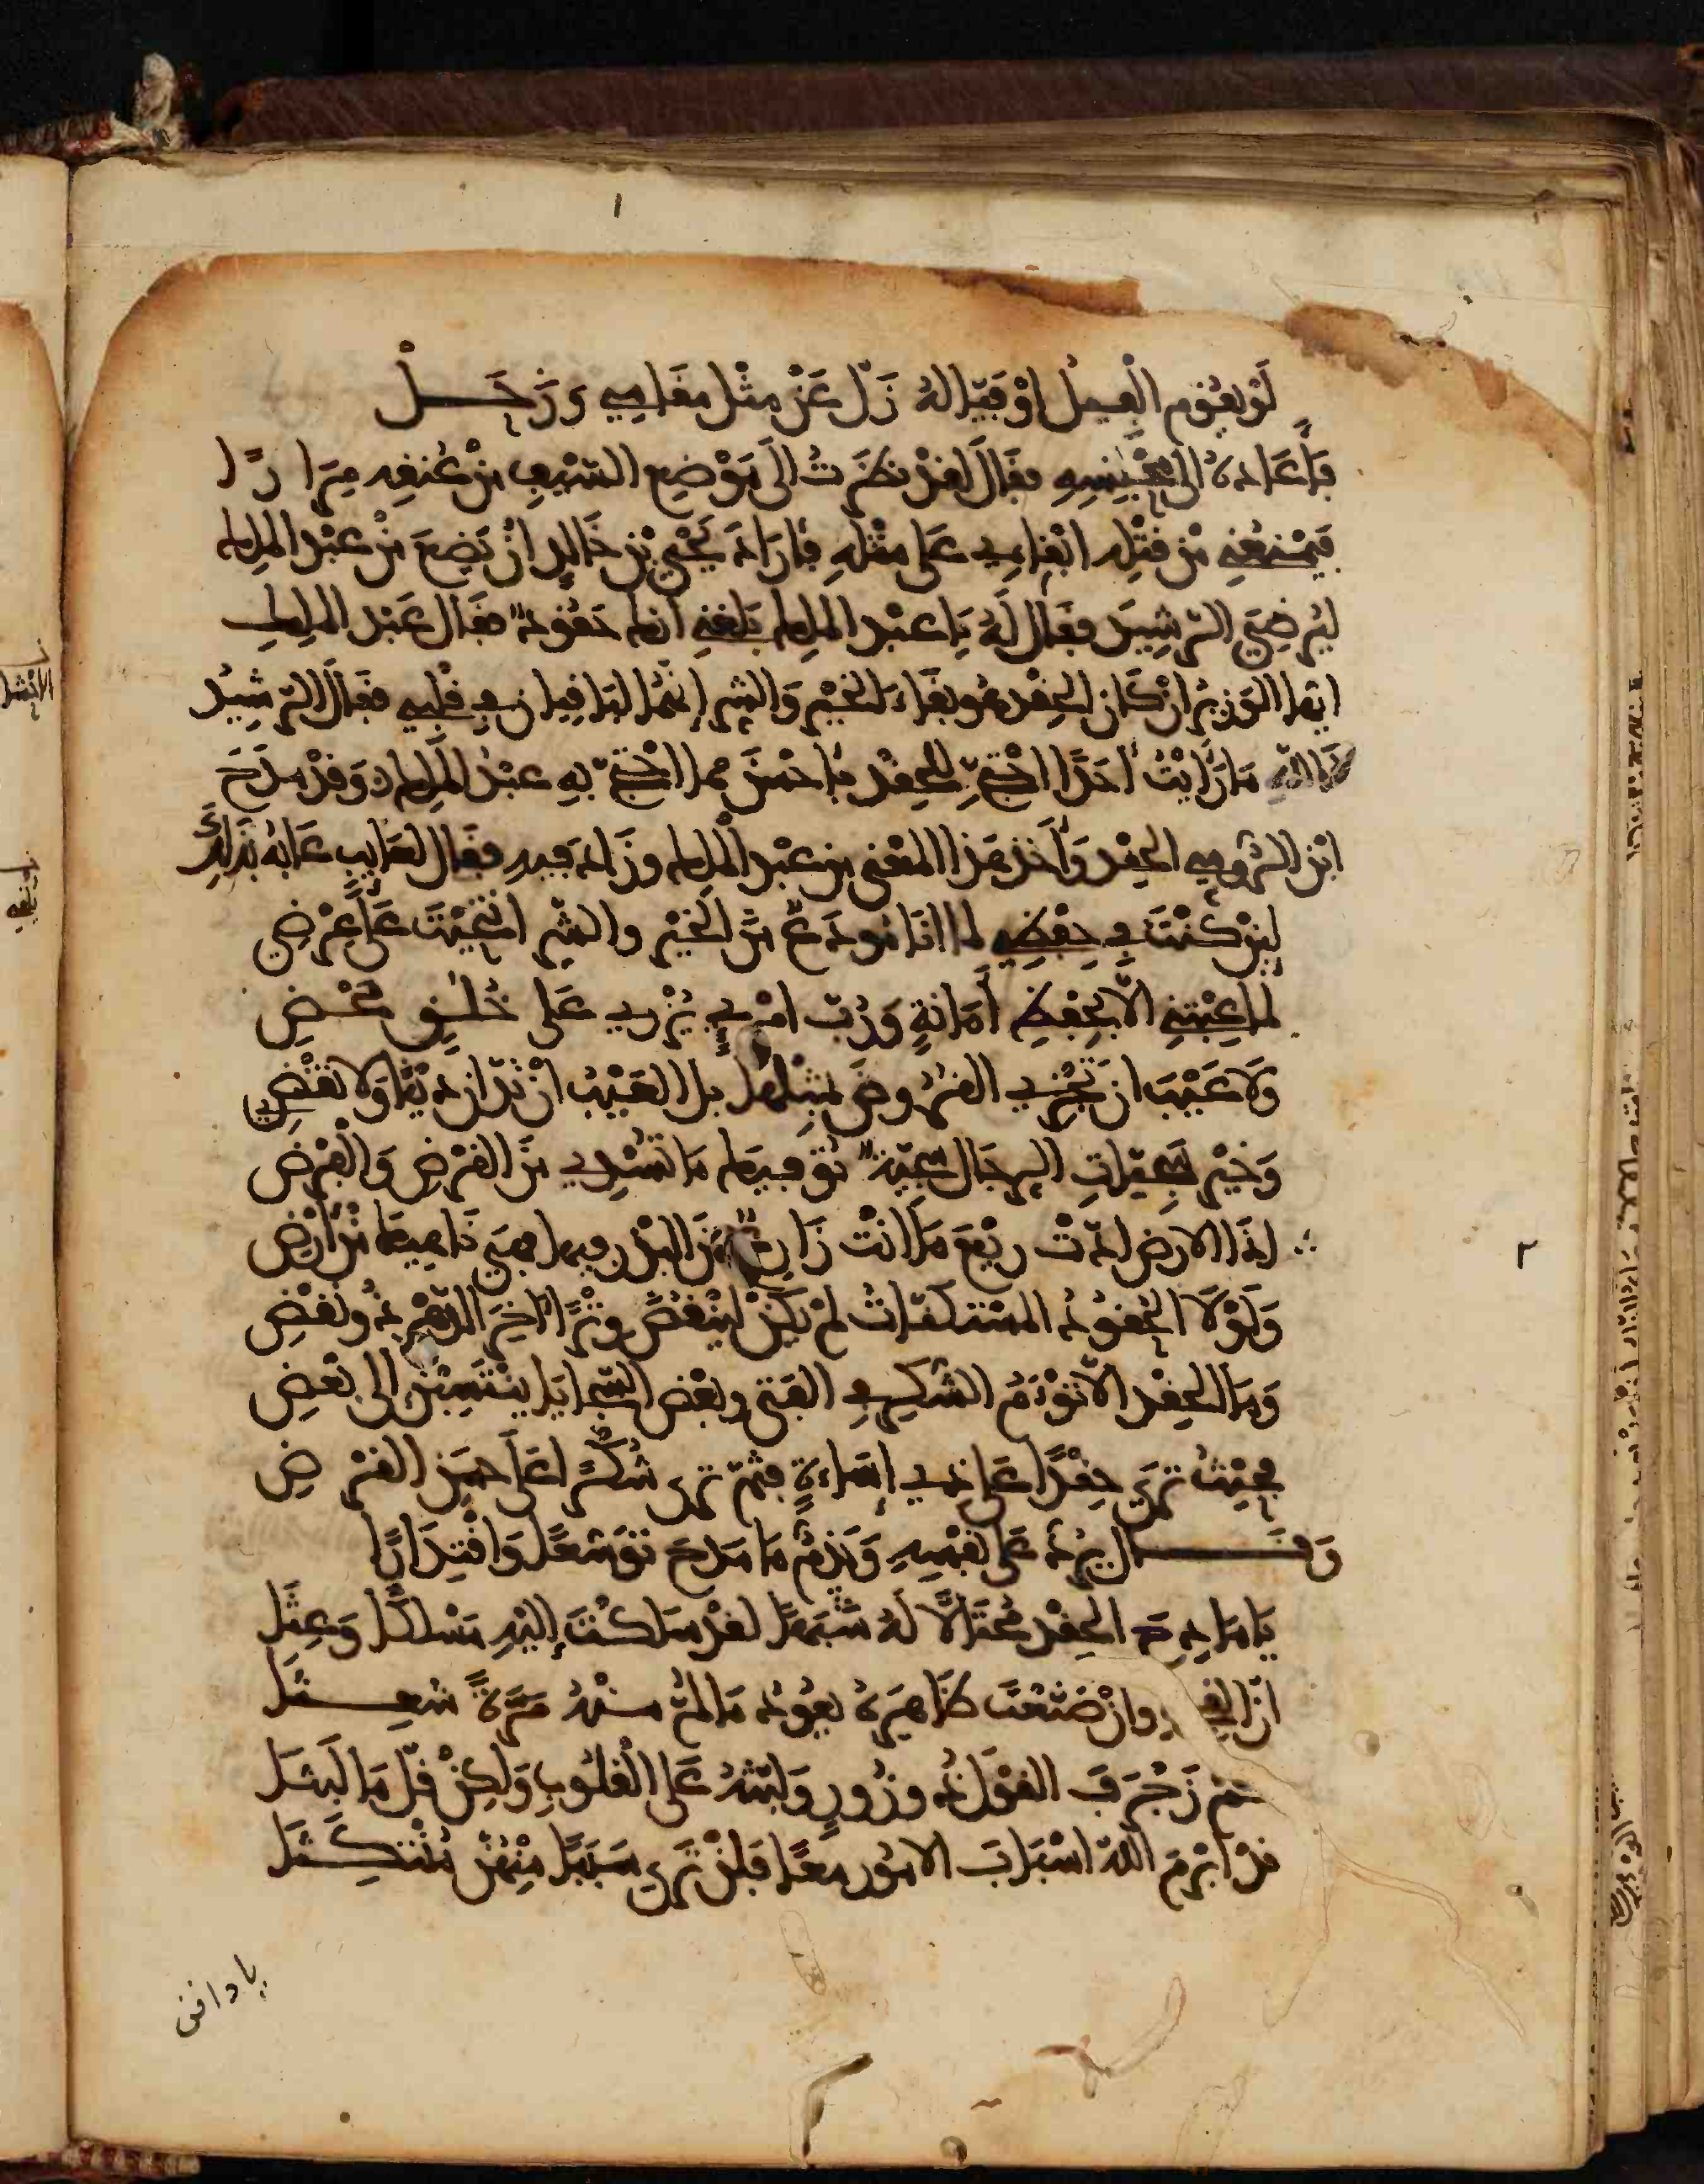 ١
لَوْ يَقُومُ الْفِيلُ أَوْ فَيَّالُهُ زَلَّ عَنْ مِثْلِ مَقَامِي وَزَحَلْ
فَأَعَادَهُ إِلَى مَحْبِسِهِ وقَالَ لقدْ نظَرْتُ إِلَى مَوْضِعِ السَّيْفِ مِنْ عُنُقِهِ مِرَارًا
فَيَمْنَعُنِي مِنْ قَتْلِهِ ابْقَاءِي عَلَى مثْلِهِ فأرَادَ يَحْيَى بْن خَالِدٍ أنْ يَضَعَ مِنْ عَبْد الملِك
ليُرْضِيَ الرَّشِيدَ فقَالَ لَهُ يَا عبْد الملِك بَلَغَنِي انك حَقُودٌ فقَال عَبْد الملِك
ايّها الوَزِيرُ انْ كَان الحِقْد هُو بقَاءَ الخَيْرِ وَالشّرِ إِنَّهُمَا لبَاقِيان فِي قَلْبِي فقَالَ الرّشِيدُ
تَاللّهِ مَا رَأَيْتُ أَحَدًا احْتَجّ لِلْحِقْدِ بأحْسَنَ مما احْتَجّ بِهِ عبْدُ المَلِك وَقدْ مدَحَ
ابْن الرُّومِي الحِقْد وَأخَذ هَذا المَعْنى من عبْد الْمَلِك وزَادَ فِيهِ فقَال لعَايِبٍ عَابَهُ بِذَلِكَ
لَئِنْ كُنْتَ فِي حِفْظِي لما انَا مُودَعٌ مِنَ الخَيْرِ والشّرِ انْتَحَيْتَ عَلَى عِرْضِي
لما عِبْتَنِي الّا بِحِفْظِ أَمَانَةٍ وَرُبّ امْرِئٍ يُزْرِي عَلَى خُلُقٍ مَحْضِ
وَلَا عَيْبَ ان تُجْزَى القُرُوضُ بمِثْلِهَا بل العَيْبُ انْ تدّانَ دَيْنًا وَلا تَقْضِي
وَخَيْر سَجِيّاتِ الرِجَال سَجِيّةٌ تُوَفِيكَ مَا تُسْدِي مِنَ القَرْضِ وَالْقَرْضِ
إذَا الارض ادّتْ رَيْعَ مَا انْتَ زَارِعٌ مِنَ البَذْر فيها فهيَ نَاهِيكَ مِنْ أَرْضِ
٢
وَلَوْلَا الحُقُودُ المسْتكنّاتُ لمْ يَكُنْ لِيَنْقُضَ وِتْرًا آخِرَ الدّهْرِ ذُو نَقْضِ
وَمَا الحِقْد الّا تَوْءَمُ الشُّكْرِ فِي الفَتى وبعْض السّجَايَا يَنْتَسِبْنَ إلى بَعْضِ
فحَيْثُ تَرَى حِقْدًا عَلى ذِي إسَاءَةٍ فَثَمّ تَرى شُكْرًا عَلَى حَسَنِ القَرْضِ
وَقَــــال يَرُدّ عَلَى نفْسِهِ وَيَذُمُّ مَا مَدَحَ تَوَسُّعًا وَاقْتِدَارًا
يَا مَادِحَ الحِقْدِ مُحْتَالًا لَهُ شَبَهًا لقدْ سَلكْتَ إِلَيْهِ مَسْلكًا وَعِثَا
انّ القبيح وانْ صَنّعْتَ ظَاهِرَهُ يعُودُ مَا لُمّ منْهُ مَرَّةً شَعِــثَا
كَمْ زَخْرَفَ القَوْلَ ذُو زُورٍ وَلَبَّسَهُ عَلَى القُلُوبِ وَلَكِنْ قَلَّ مَا لَبِثَا
قدْ ابْرَمَ اللّه اسْبَابَ الامُور معًا فَلَنْ تَرَى سَبَبًا مِنْهُنّ مُنْتَكِــثَا
يا دافن